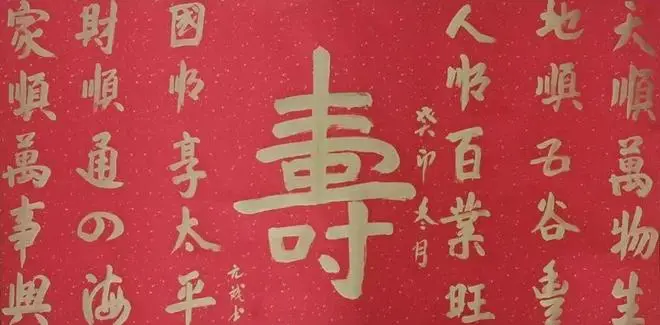 天順萬物生
地順五谷豐
人順百業旺
癸卯冬月
壽
國順享太平
財順通四海
家順萬事興